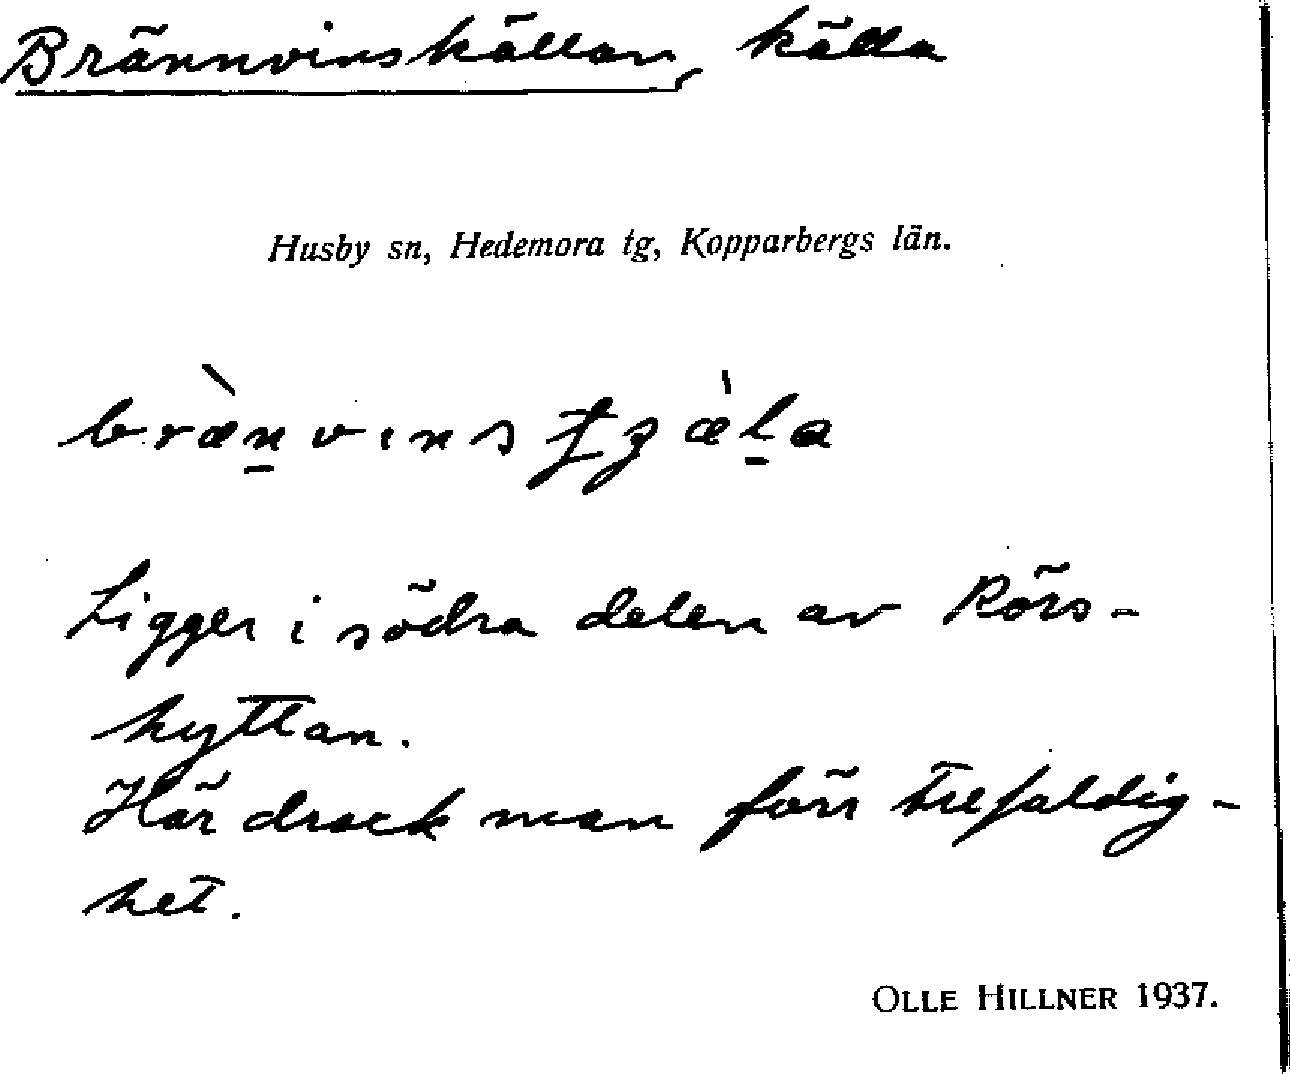 Brännvinskällan, källa
Husby sn, Hedemora tg, Kopparbergs län.
Ligger i södra delen av Rörs-
hyttan.
Här drack man förr trefaldig-
het.
OLLE HILLNER 1937.